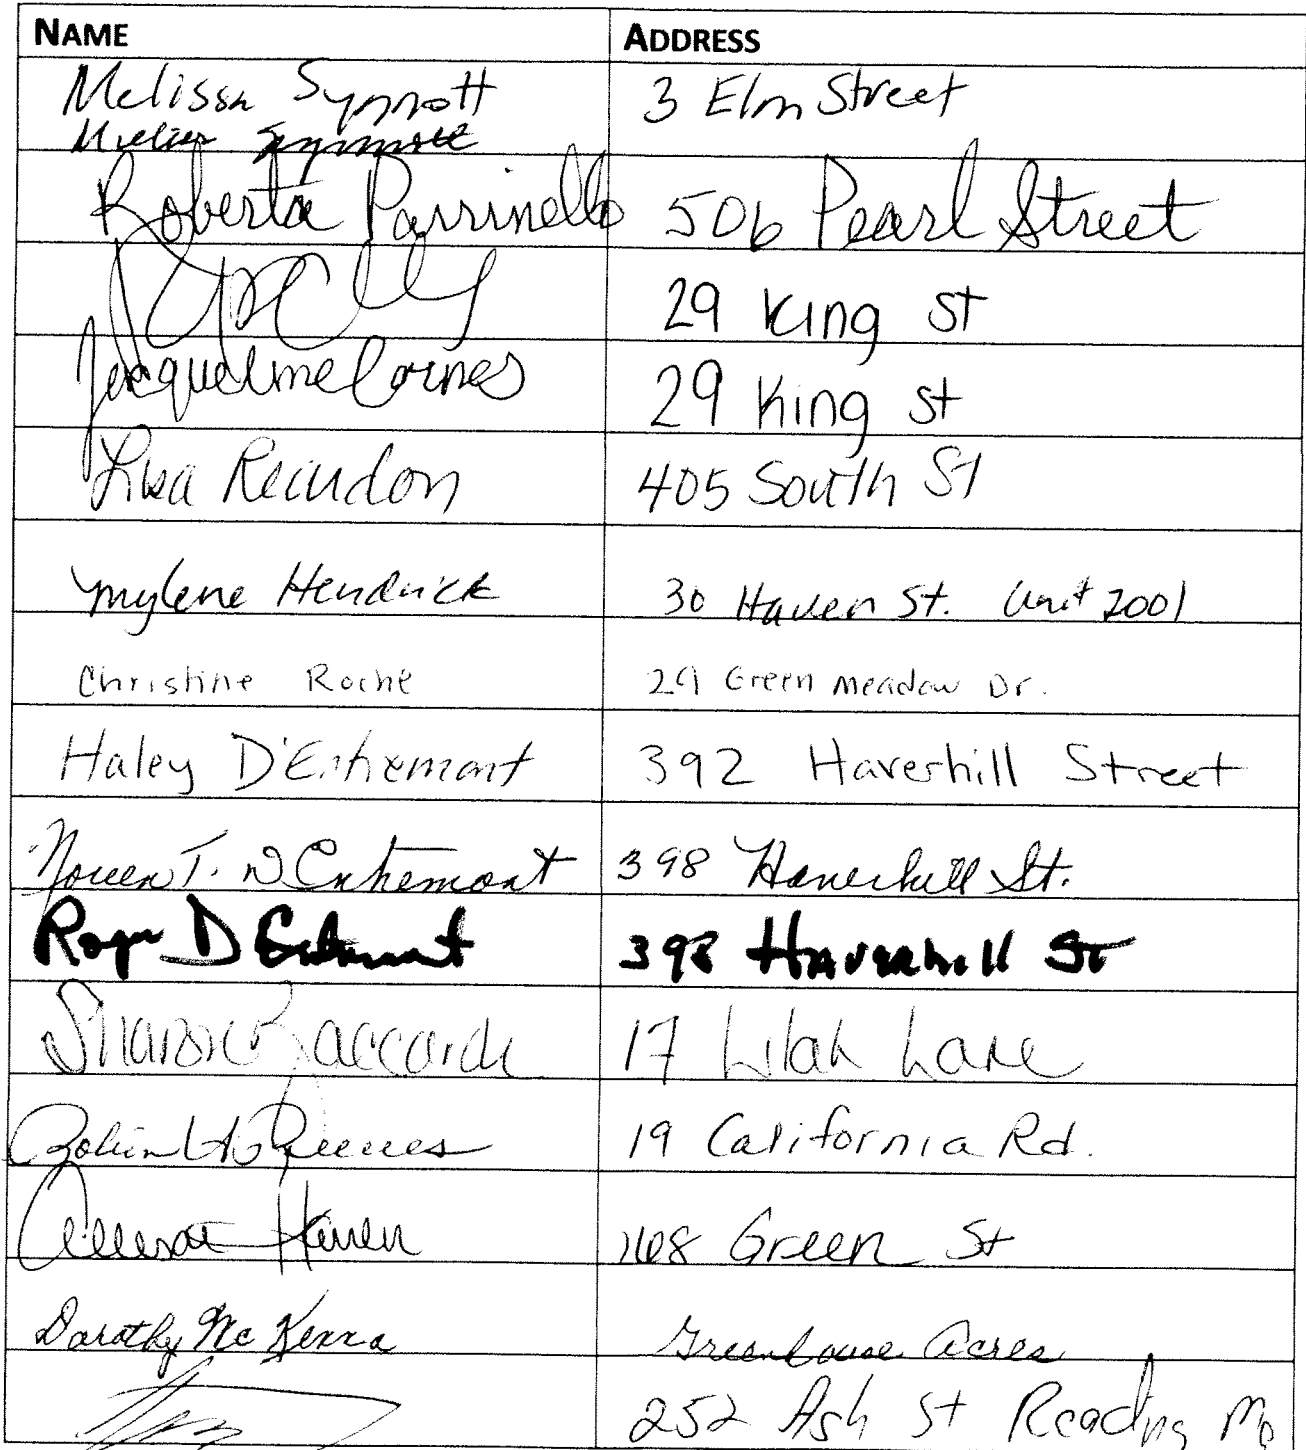 NAME ADDRESS
Melissa Synnott 3 Elm Street
Synnott
Roberta Parrinello 506 Pearl Street
29 King St
Jacqueline Carnes 29 King St
Lisa Reardon 405 South St
Mylene Hendrick 30 Haven St. Unit 2001
Christine Roche 29 Green Meadow Dr.
Haley D'Entremont 392 Haverhill Street
Noreen T. D'Entremont 398 Haverhill St.
Roger D'Entremont 398 Haverhill St
Sharon 17 Lilah Lane
Robin 19 California Rd.
Haven 168 Green St
Dorothy McKenna Greenhouse Acres
252 Ash St Reading Ma